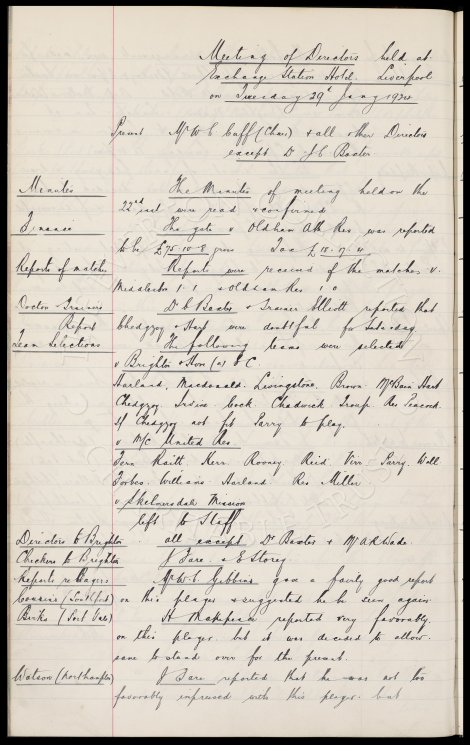 Meeting of Directors held at
Exchange Station Hotel. Liverpool
on Tuesday 29th Jany 1924
Present Mr W C Cuff (Chair) & all other Directors
except Dr J C Baxter
Minutes The Minutes of meeting held on the
22nd inst were read & confirmed
Finance The gate v Oldham Ath Res was reported
to be £75-10-8 gross Tax £18-17-4
Reports of matches Reports were received of the matches v.
Middlesbro 1-1 & Oldham Res 1 0
Doctor & Trainers Dr C Baxter & Trainer Elliott reported that
Report Chedgzoy & Hart were doubtful for Saturday
Team Selections The following teams were selected
v Brighton & Hove (a) E C.
Harland, Macdonald. Livingstone, Brown McBain Hart
Chedgzoy. Irvine Cock. Chadwick. Troup. Res Peacock.
If Chedgzoy not fit Parry to play.
v M/C United Res
Fern Raitt. Kerr. Rooney Reid. Virr. Parry. Wall
Forbes. Williams. Harland Res Miller
v Skelmersdale Mission
left to Staff
Directors to Brighton all except Dr Baxter & Mr A R Wade.
Checkers to Brighton J Fare. & E Storey.
Reports re Players Mr W C Gibbins gave a fairly good report
Cousins (Southport) on this player & suggested he be seen again
Birks (Port Vale) H Makepeace reported very favorably.
on this player. but it was decided to allow
same to stand over for the present.
Watson (Northampton) J Fare reported that he was not too
favorably impressed with this player. but